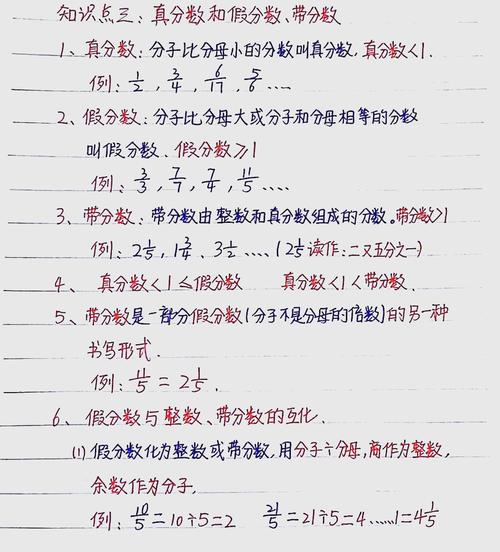 知识点三：真分数和假分数、带分数
1、真分数：分子比分母小的分数叫真分数，真分数<1.
例：1/2，3/4，6/17，5/6……
2、假分数：分子比分母大或分子和分母相等的分数
叫假分数、假分数≥1
例：3/3，7/7，7/4，11/5……
3、带分数：带分数由整数和真分数组成的分数。带分数>1
例：2 1/5，1 3/4，3 1/2……（2 1/5读作：二又五分之一）
4、真分数<1≤假分数 真分数<1<带分数.
5、带分数是一部分假分数（分子不是分母的倍数）的另一种
书写形式.
例：11/5 = 2 1/5.
6、假分数与整数、带分数的互化.
(1) 假分数化为整数或带分数，用分子÷分母，商作为整数，
余数作为分子.
例：10/5=10÷5=2 21/5=21÷5=4……1=4 1/5